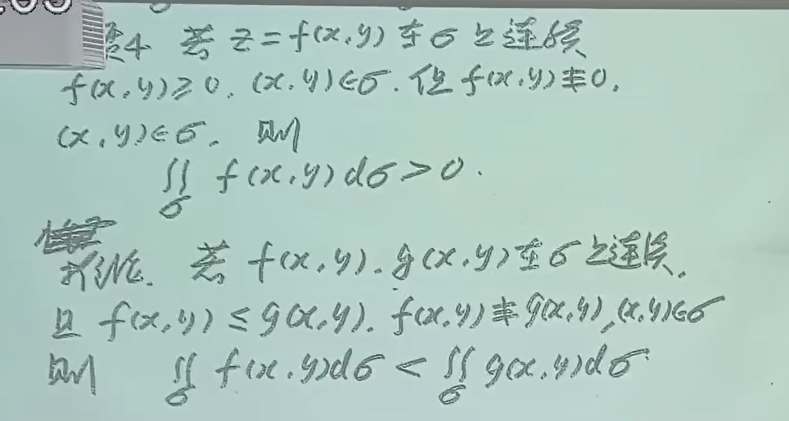 4 若 z=f(x,y) 在 σ 上连续
f(x,y)≥0, (x,y)∈σ. 但 f(x,y)≢0,
(x,y)∈σ. 则
∬_σ f(x,y)dσ>0.
推论. 若 f(x,y), g(x,y) 在 σ 上连续,
且 f(x,y)≤g(x,y), f(x,y)≢g(x,y), (x,y)∈σ
则 ∬_σ f(x,y)dσ < ∬_σ g(x,y)dσ